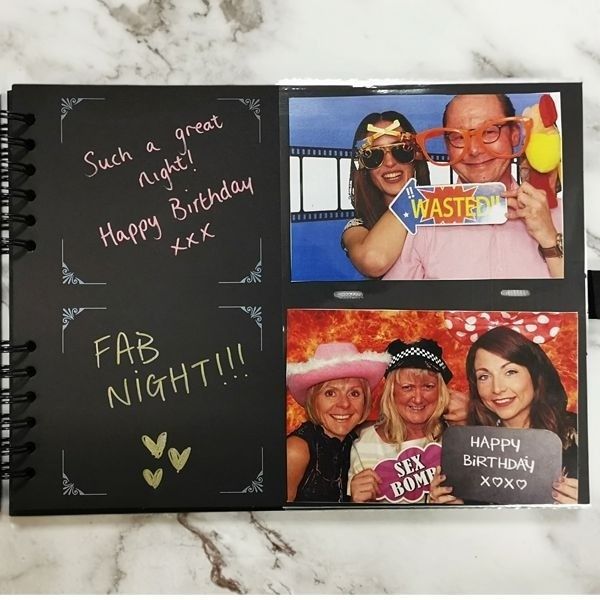 Such a great
night!
Happy Birthday
xxx
FAB
NIGHT!!!
!! WASTED!!
SEX
BOMB
HAPPY
BIRTHDAY
XOXO